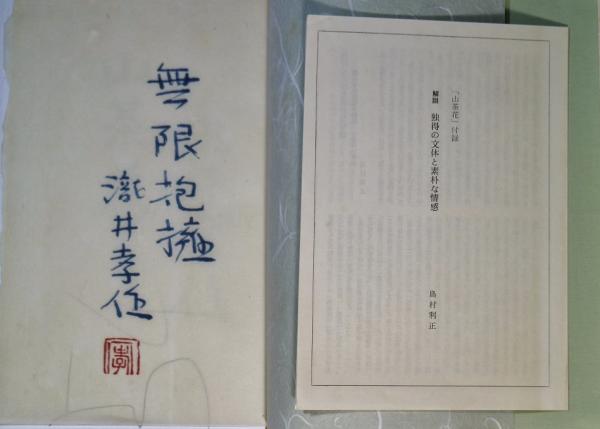 無限抱擁
瀧井孝作
孝
「山茶花」付録
解説 独得の文体と素朴な情感
島村利正